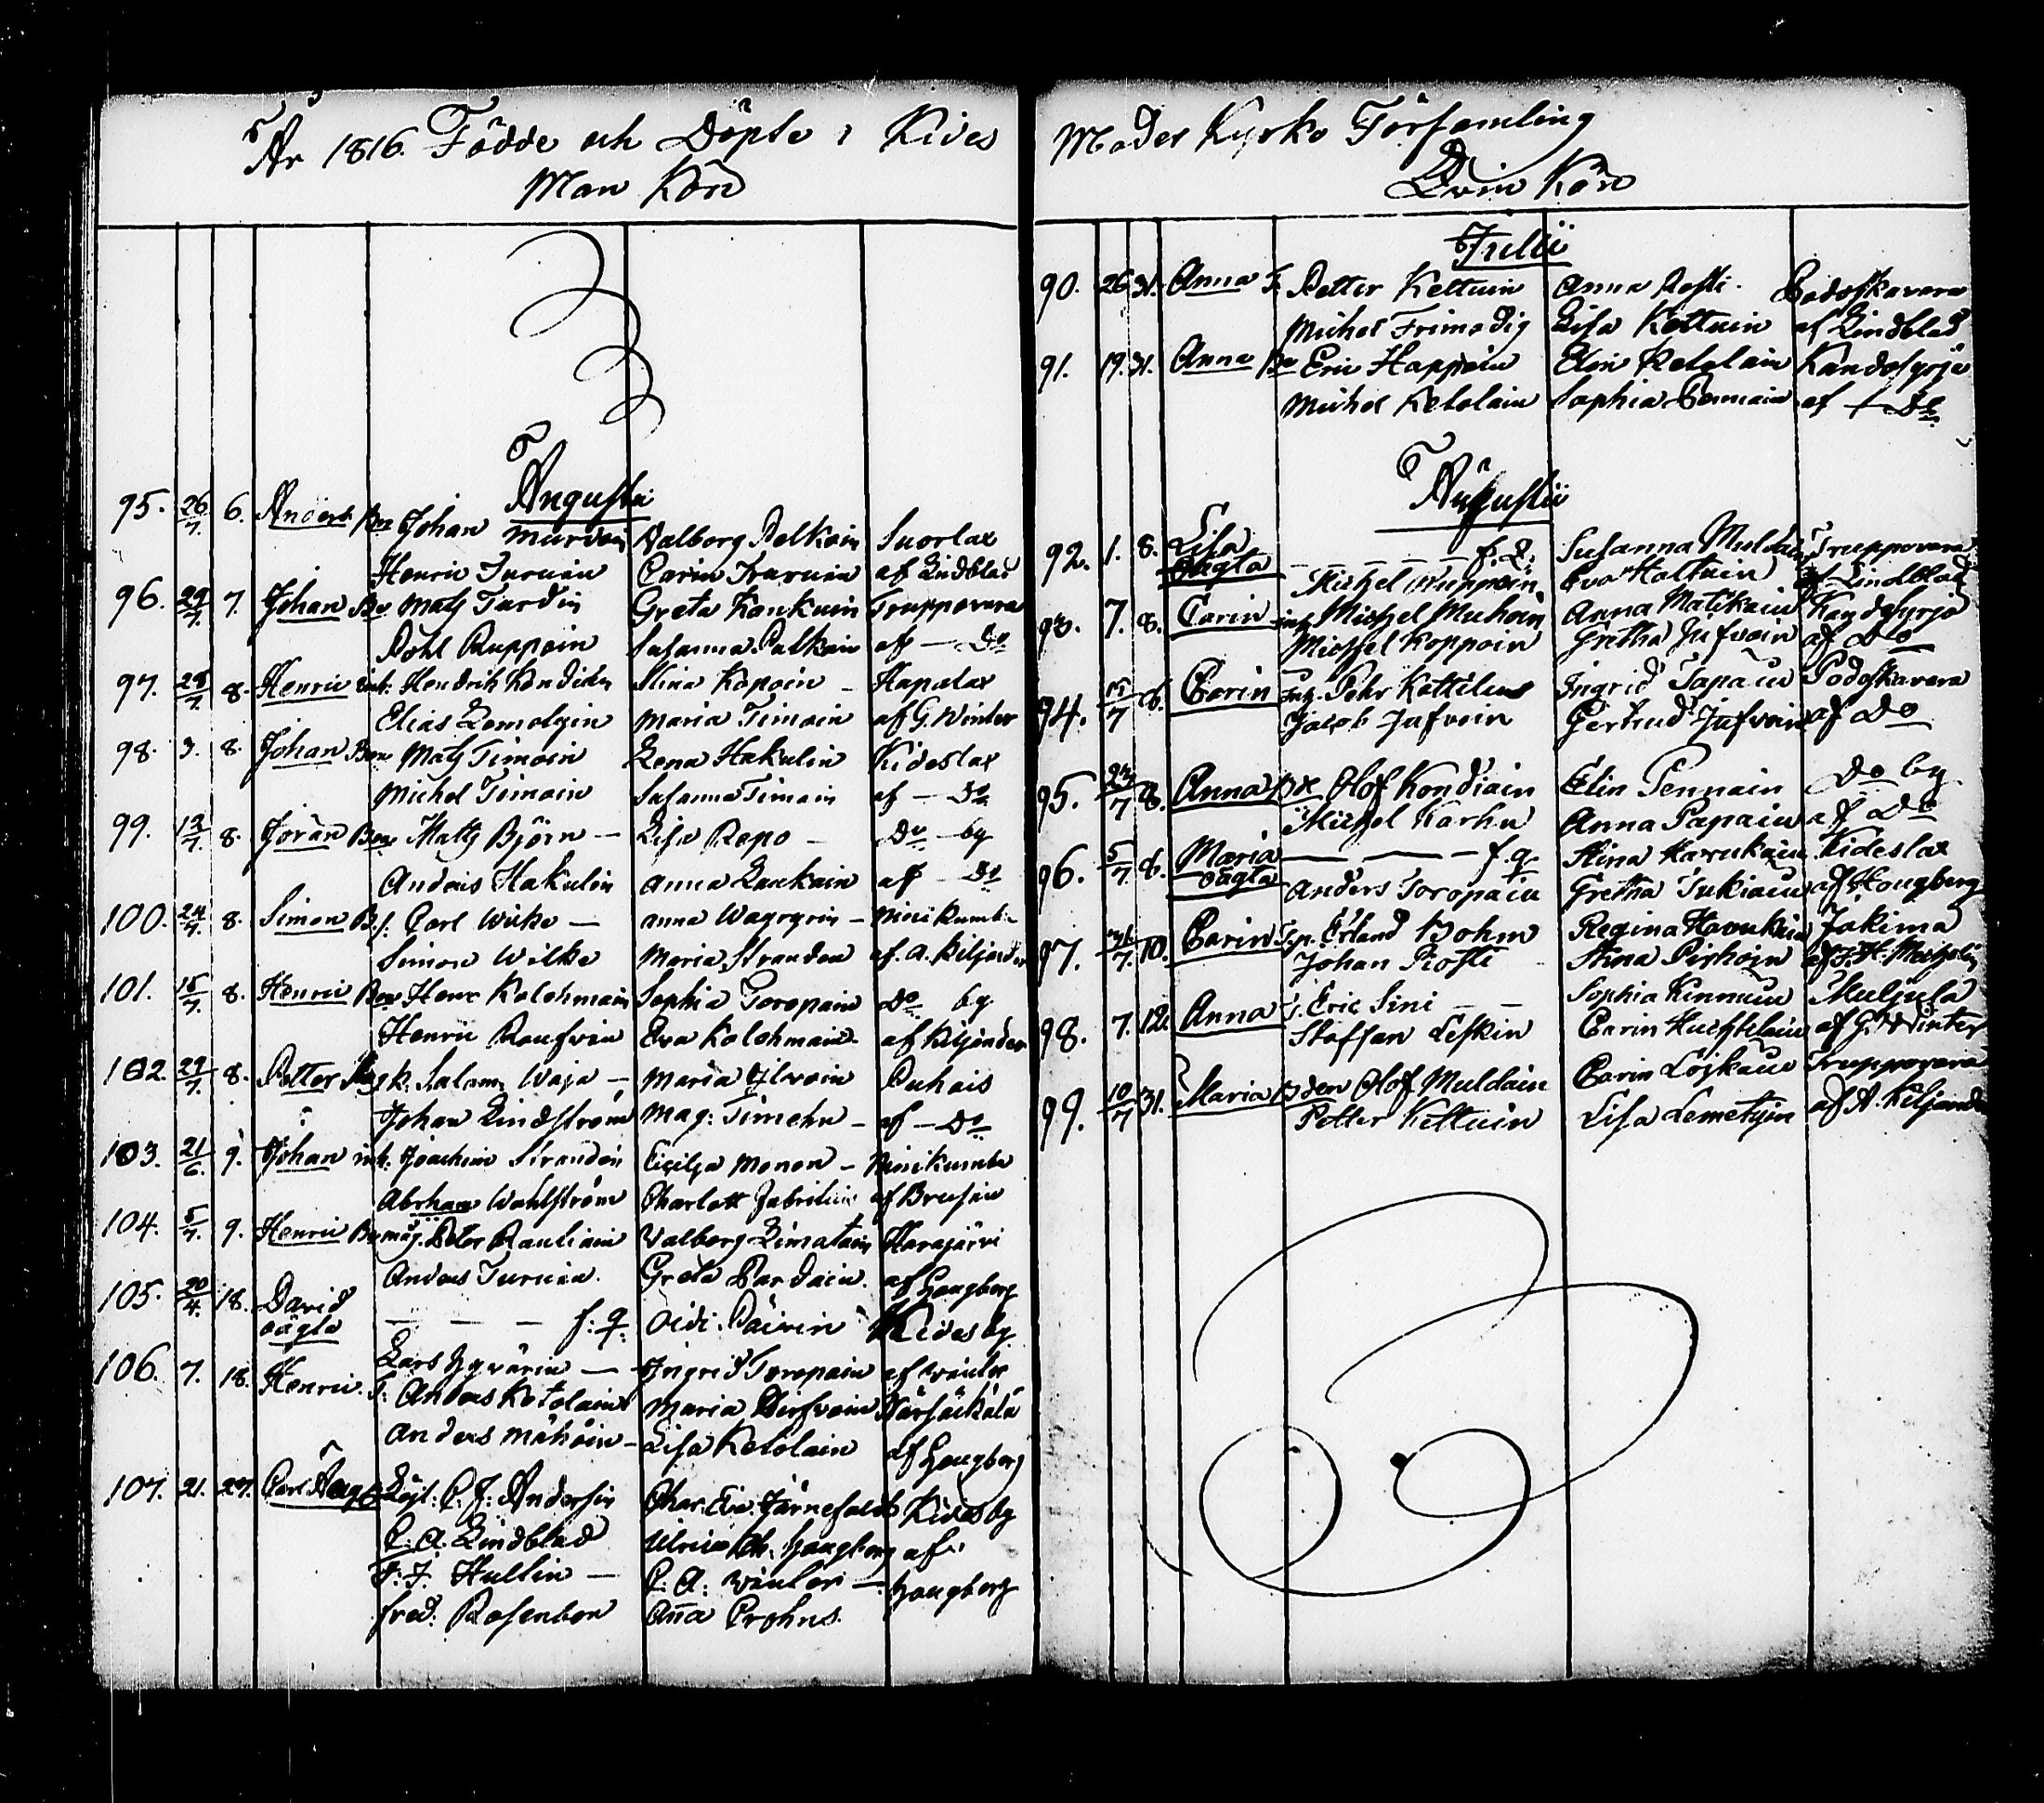 År 1816. Födde och Döpte i Kides
Man Kön
Augusti
95. 26/7 6. Anders Bn Johan Murvain Valborg Pelkoin Suorlax
Henric Turuin Carin Traruin af Lindblad
96. 29/7 7. Johan Bn Mats Turdin Greta Konkuin Trupporara
Pohl Ruppoin Susanna Pulkain af — Do
97. 28/7 8. Henric inh: Hendrik Kondiain Stina Kopoin — Hapalax
Elias Lomolgin Maria Timoin af G. Winter
98. 3. 8. Johan Bon Mats Timoin Lena Hakulin Kideslax
Michel Timoin Susanna Timoin af — Do
99. 13/7 8. Jöran Bon Matts Björn — Lisa Repo — Do — by
Anders Hakulin Anna Laukain af Do
100. 24/7 8. Simon B.f. Carl Wilke — Anna Wagrgrin — Niinikumbu
Simon Wilke Maria Strandon af A. Kiljander
101. 15/7 8. Henric Bon Henr Kolehmain Sophia Toropain Do by
Henric Raufvin Eva Kolehmain af Kiljander
102. 29/7 8. Petter k. Salam. Waja — Maria Ilvoin Puhois
Johan Lindström Mag: Timehn — af — Do
103. 21/6. 9. Johan inh: Joachim Strandén Cicilja Monon — Niinikumbu
Abrham Wahlström Charlott Fabritius af Brusin
104. 5/7. 9. Henric Bn måg. Petter Rauliain Valborg Limatain Harajärvi
Anders Turuin. Greta Pardain. af Hougberg
105. 20/4. 18. David
oägta — — — f: q: Oidi Päivin Kides by
Lars Hyvärin — Ingrid Toropain af Winter
106. 7. 18. Henric. T: Anders Ketolain Maria Hirfvoin Närsäkälä
Anders Mähöin — Lisa Ketolain af Hougberg
107. 21. 27. Carl Aug: Löjt: C. J: Andersin Char. Eva. Järnefeldt Kides by
C: A. Lindblad Ulrica Ch: Hougberg af
F: J. Hullin — C. A: Winter — Hougberg
fred. Rosenbon Anna Crohns.
Moder Kyrko Församling
Qvin Kön
Julii
90. 26. 31. Anna T. Petter Kettuin Anna Rosti. Podoskavara
Michel Frimodig Lisa Kettuin af Lindblad
91. 19. 31. Anna Bn Eric Happoin Elin Ketolain Kandosyrjä
Michel Ketolain Sophia Pennain af — Do
Augustii
92. 1. 8. Lisa
oägta — — — f. q: Susanna Muldain Trupporara
Michel Ruppoin Eva Holtuin af Lindblad
93. 7. 8. Carin inh Michel Muhoin Anna Matikain Kandosyrjä
Michel Koppoin Gretha Jufvoin af Do
94. 15/7 8. Carin inh. Pehr Kattilus Ingrid Tapain Podoskavara
Jacob Jufvoin Gertrud Jufvoin af Do
95. 23/7 8. Anna Bde Olof Kondiain Elin Pennain Do by
Michel Karhu Anna Papain af Do
96. 5/7 8. Maria
oägta — — — f. q. Stina Karukain Kideslax
Anders Toropain Gretha Tukiain af Hougberg
97. 26/7. 10. Carin Tp. Erland Bohm Regina Havukain Jakima
Johan Rosti Anna Pirhoin af
98. 7. 12. Anna T. Eric Sini — — Sophia Kinnuin Muljula
Staffan Leskin Carin Huchtilain af G. Winter
99. 10/7 31. Maria Bden Olof Muldain Carin Lojkain Trupporara
Petter Kettuin Lisa Lemetyin af A. Kiljander